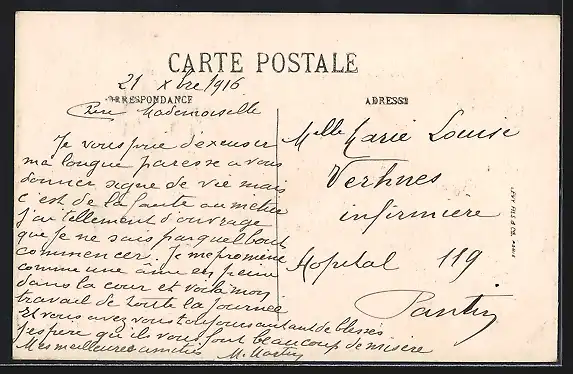 CARTE POSTALE
21 Xbre 1916
CORRESPONDANCE
ADRESSE
Mademoiselle
Je vous prie d'excuser
ma longue paresse a vous
donner signe de vie mais
c'est de la faute au metier
j'ai tellement d'ouvrage
que je ne sais par quel bout
commencer. Je me promène
comme une âme en peine
dans la cour et voilà mon
travail de toute la journée
Et vous avez vous toujours autant de blessés
J'espère qu'ils vous font beaucoup de misère
Mes meilleures amitiés M. Martin
Melle Marie Louise
Verhnes
infirmière
Hopital 119
Pantin
LEVY FILS & Cie, PARIS